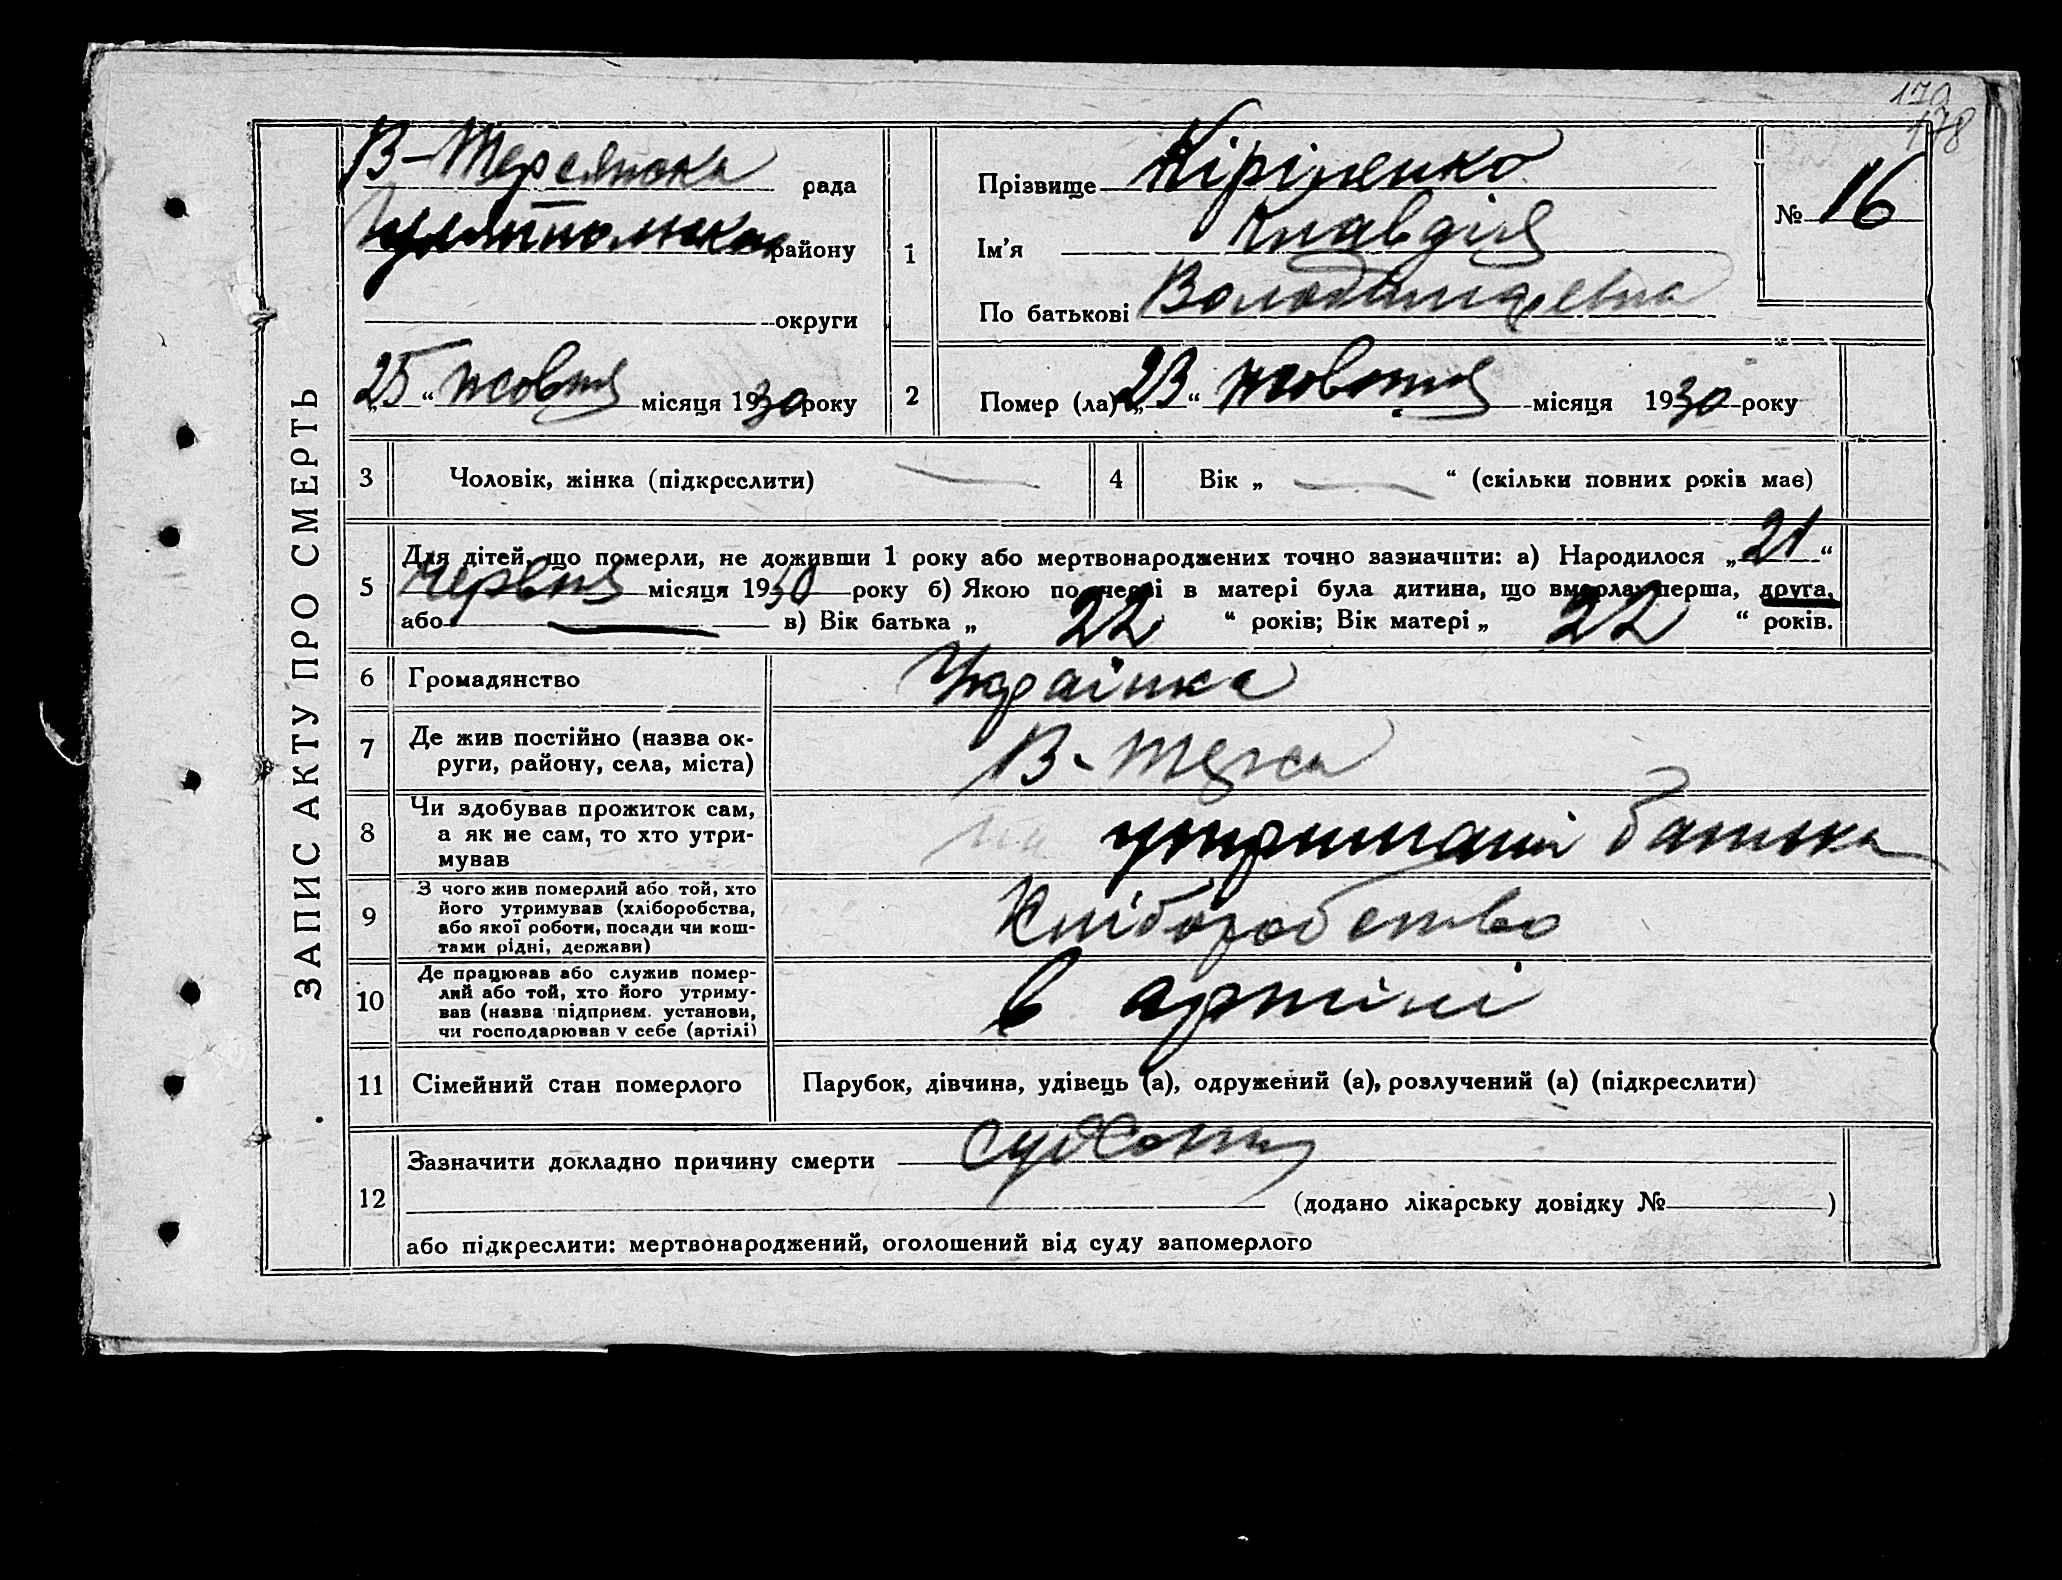 170
178
ЗАПИС АКТУ ПРО СМЕРТЬ
В-Терсянска рада
Гуляйпольського району
округи
„25“ жовтня місяця 1930 року
1
Прізвище Кіріленко
Ім’я Клавдія
По батькові Володимировна
№ 16
2 Помер (ла) „23“ жовтня місяця 1930 року
3 Чоловік, жінка (підкреслити)
4 Вік „ — “ (скільки повних років має)
5 Для дітей, що померли, не доживши 1 року або мертвонароджених точно зазначити: а) Народилося „21“
червня місяця 1930 року б) Якою по черзі в матері була дитина, що вмерла: перша, друга,
або — в) Вік батька „ 22 “ років; Вік матері „ 22 “ років.
6 Громадянство Украінка
7 Де жив постійно (назва ок-
руги, району, села, міста) В-Терса
8 Чи здобував прожиток сам,
а як не сам, то хто утри-
мував на утриманні батька
9 З чого жив померлий або той, хто
його утримував (хліборобства,
або якої роботи, посади чи кош-
тами рідні, держави) Хліборобство
10 Де працював або служив помер-
лий або той, хто його утриму-
вав (назва підприєм. установи,
чи господарював у себе (артілі) в артілі
11 Сімейний стан померлого Парубок, дівчина, удівець (а), одружений (а), розлучений (а) (підкреслити)
12 Зазначити докладно причину смерти сухоти
(додано лікарську довідку № )
або підкреслити: мертвонароджений, оголошений від суду запомерлого